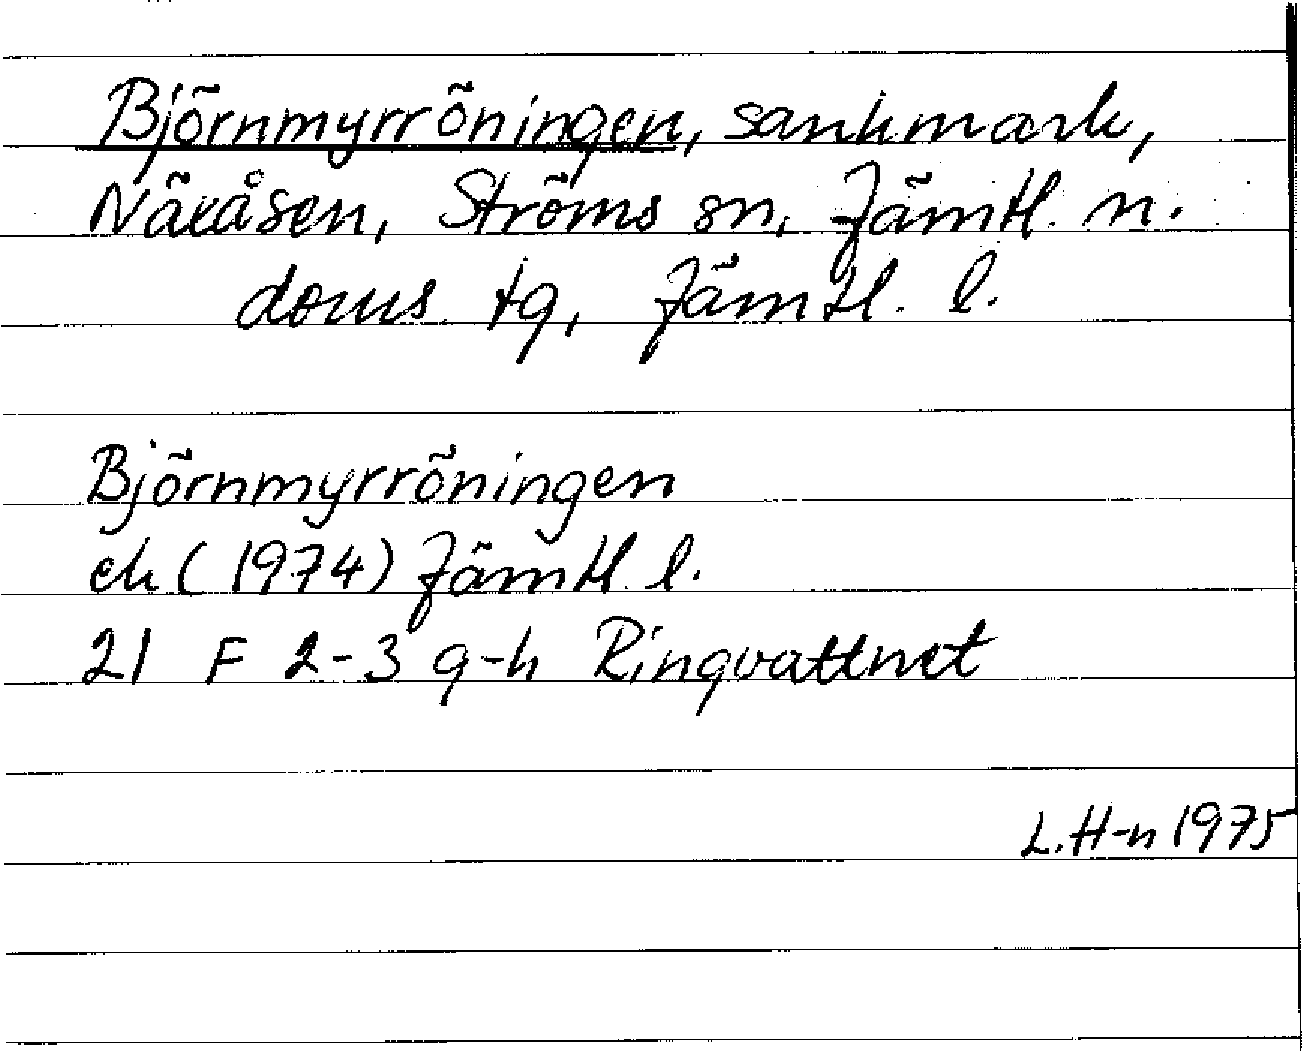 Björnmyrröningen, sankmark,
Näxåsen, Ströms sn, Jämtl. n.
doms tg, Jämtl. l.
Björnmyrröningen
ek (1974) Jämtl l.
21 F 2-3 g-h Ringvattnet
L. H-n 1975